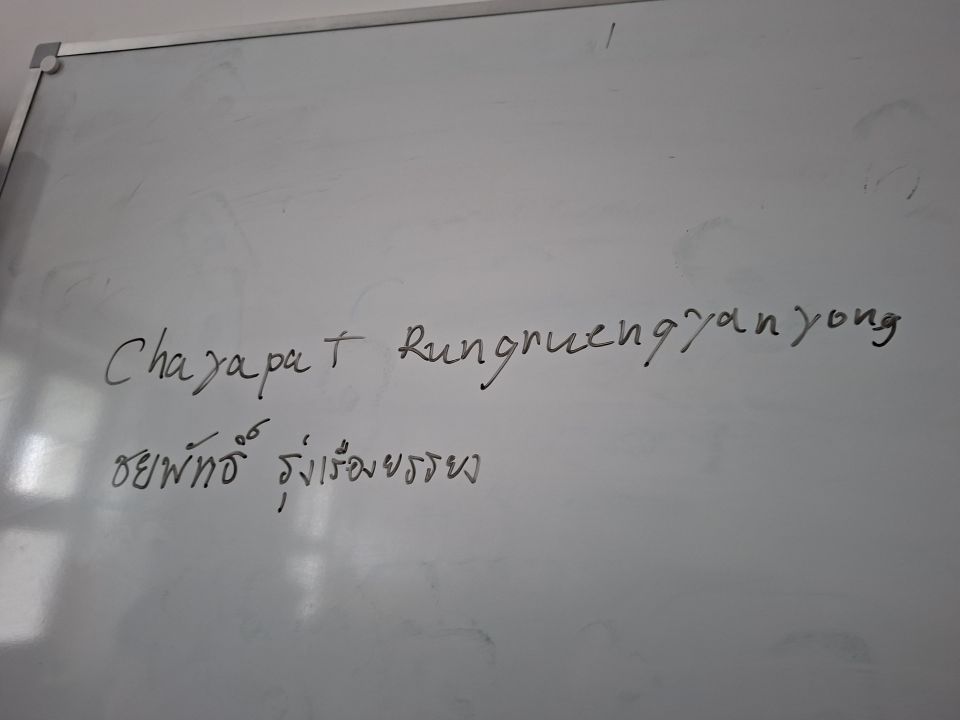 Chayapat Rungruengyanyong
ชยพัทธิ์ รุ่งเรืองยรรยง